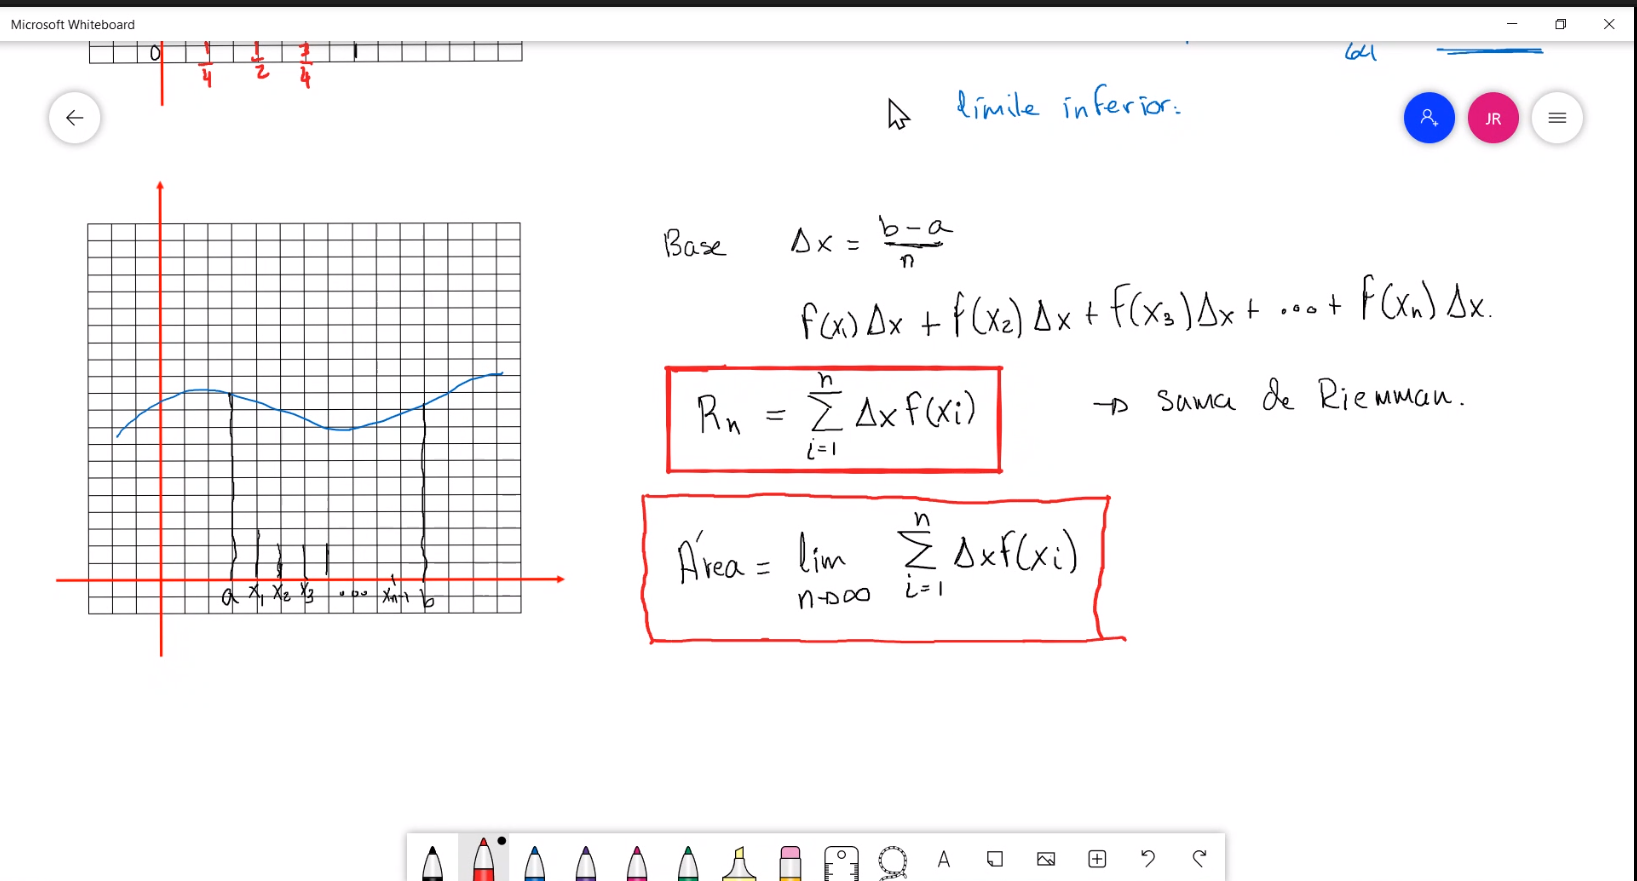 Microsoft Whiteboard
0 1/4 1/2 3/4 1
64
límite inferior:
JR
Base Δx = (b-a)/n
f(x₁)Δx + f(x₂)Δx + f(x₃)Δx + ... + f(xₙ)Δx.
Rₙ = Σ_{i=1}^{n} Δx f(xi)
→ suma de Riemman.
Área = lim_{n→∞} Σ_{i=1}^{n} Δxf(xi)
a x₁ x₂ x₃ .... xₙ₋₁ b
A